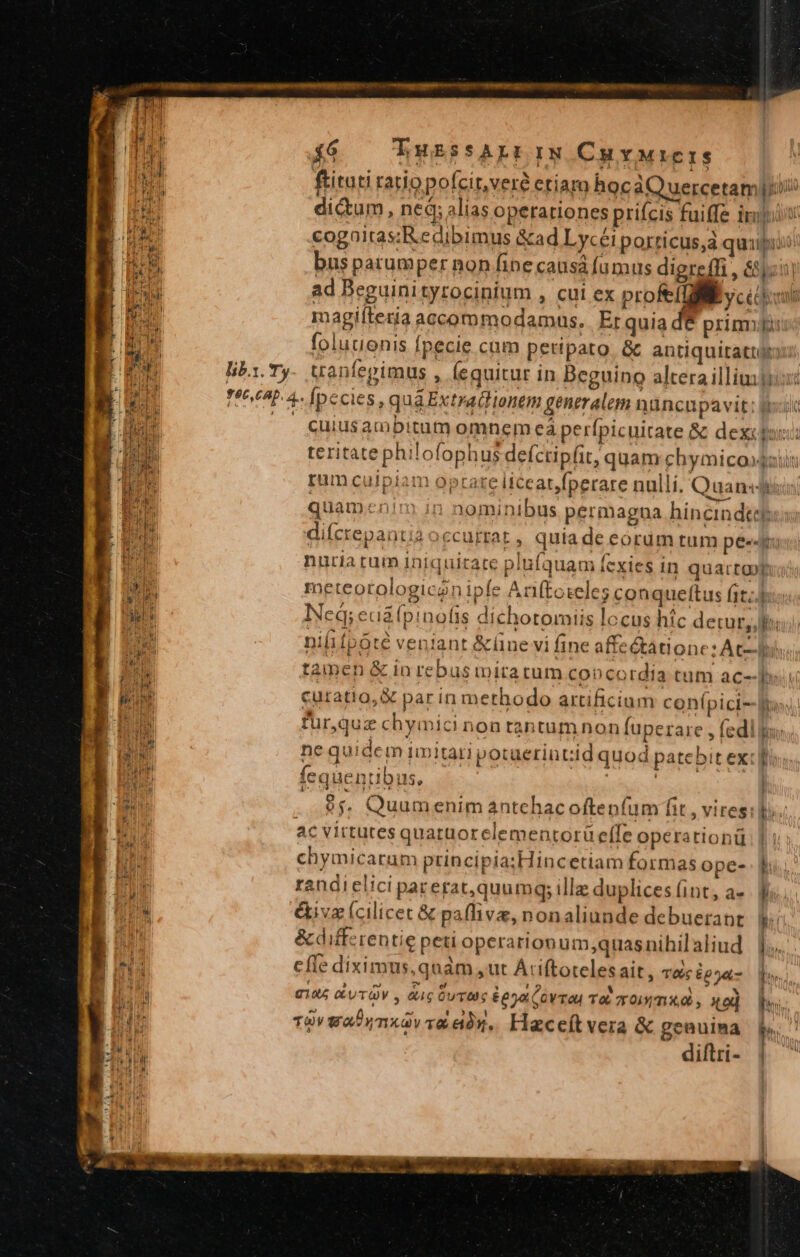 56 THESSALI IN CHYMICIS
ſtituti ratio poſcit, verè etiam hoc à Quercetam
dictum, neq; alias operationes priſcis fuiſſe in
cognitas: Redibimus & ad Lycéi porticus, à qui
bus parumper non ſine causâ ſumus digreſſi, &
ad Beguini tyrocinium, cui ex
magiſteria accommodamus. Et quia de prim
ſolutionis ſpecie cum peripato & antiquitat
lib. 1. Ty- tranſegimus, ſequitur in Beguino altera illiu
roc. cap. 4. ſpecies, quâ Extractionem generalem nuncupavit:
cuius ambitum omnem eâ perſpicuitate & dex
teritate philoſophus deſcripſit, quam chymico
rum cuipiam optare liceat, ſperare nulli. Quan
quam enim in nominibus permagna hinc inde
diſcrepantia occurrat, quia de eorum tum pe-
nuria tum iniquitate pluſquam ſexies in quarto
meteorologicῶn ipſe Ariſtoteles conqueſtus ſit:
Neq; euâ ſpinoſis dichotomiis locus hîc detur,
niſi ſpōtè veniant & ſine vi ſine affectatione: At
tamen & in rebus mira tum concordia tum ac-
curatio, & par in methodo artificium conſpici-
tur, quæ chymici non tantum non ſuperare, ſed
ne quidem imitari potuerint: id quod patebit ex
ſequentibus.
85. Quum enim antehac oſtenſum ſit, vires
ac virtutes quatuor elementorū eſſe operationū
chymicarum principia; Hinc etiam formas ope-
randi elici par erat, quumq; illæ duplices ſint, a-
ctivæ ſcilicet & paſſivæ, non aliunde debuerant
& differentię peti operationum, quas nihil aliud
eſſe diximus, quàm, ut Ariſtoteles ait, τὰς ἐργα-
σίας αὐτῶν, αἷς οὕτως ἐργάζονται τὰ ποιητικὰ, καὶ
τῶν παθητικῶν τὰ εἴδη. Hæc eſt vera & genuina
diſtri-